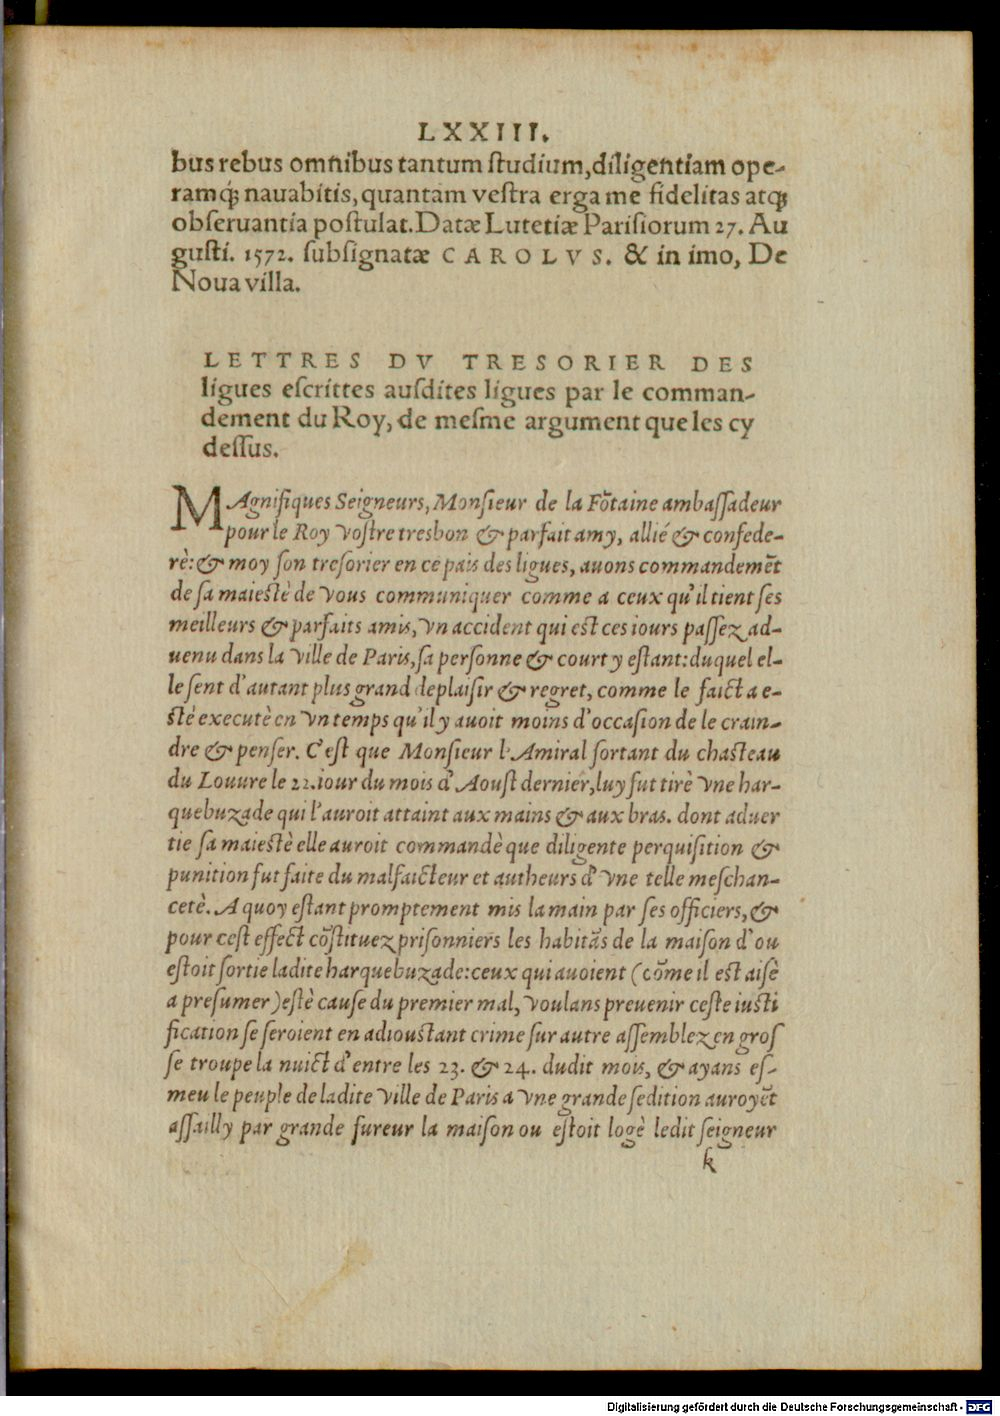 LXXIII.
bus rebus omnibus tantum ſtudium, diligentiam ope-
ramq́; nauabitis, quantam veſtra erga me fidelitas atq;
obſeruantia poſtulat. Datæ Lutetiæ Pariſiorum 27. Au
guſti. 1572. ſubſignatæ CAROLVS. & in imo, De
Noua villa.
LETTRES DV TRESORIER DES
ligues eſcrittes auſdites ligues par le comman-
dement du Roy, de meſme argument que les cy
deſſus.
MAgnifiques Seigneurs, Monſieur de la Fõtaine ambaſſadeur
pour le Roy voſtre tresbon & parfait amy, allié & confede-
rè: & moy ſon treſorier en ce pais des ligues, auons commandemẽt
de ſa maieſtè de vous communiquer comme a ceux qu'il tient ſes
meilleurs & parfaits amis, vn accident qui eſt ces iours paſſez ad-
uenu dans la ville de Paris, ſa perſonne & court y eſtant: duquel el-
le ſent d'autant plus grand deplaiſir & regret, comme le faict a e-
ſtè executè en vn temps qu'il y auoit moins d'occaſion de le crain-
dre & penſer. C'eſt que Monſieur l'Amiral ſortant du chaſteau
du Louure le 22. iour du mois d'Aouſt dernier, luy fut tirè vne har-
quebuzade qui l'auroit attaint aux mains & aux bras. dont aduer
tie ſa maieſtè elle auroit commandè que diligente perquiſition &
punition fut faite du malfaicteur et autheurs d'vne telle meſchan-
cetè. A quoy eſtant promptement mis la main par ſes officiers, &
pour ceſt effect cõſtituez priſonniers les habitãs de la maiſon d'ou
eſtoit ſortie ladite harquebuzade: ceux qui auoient (cõme il eſt aiſè
a preſumer) eſtè cauſe du premier mal, voulans preuenir ceſte iuſti
fication ſe ſeroient en adiouſtant crime ſur autre aſſemblez en groſ
ſe troupe la nuict d'entre les 23. & 24. dudit mois, & ayans eſ-
meu le peuple de ladite ville de Paris a vne grande ſedition auroyẽt
aſſailly par grande fureur la maiſon ou eſtoit logè ledit ſeigneur
k
Digitalisierung gefördert durch die Deutsche Forschungsgemeinschaft - DFG